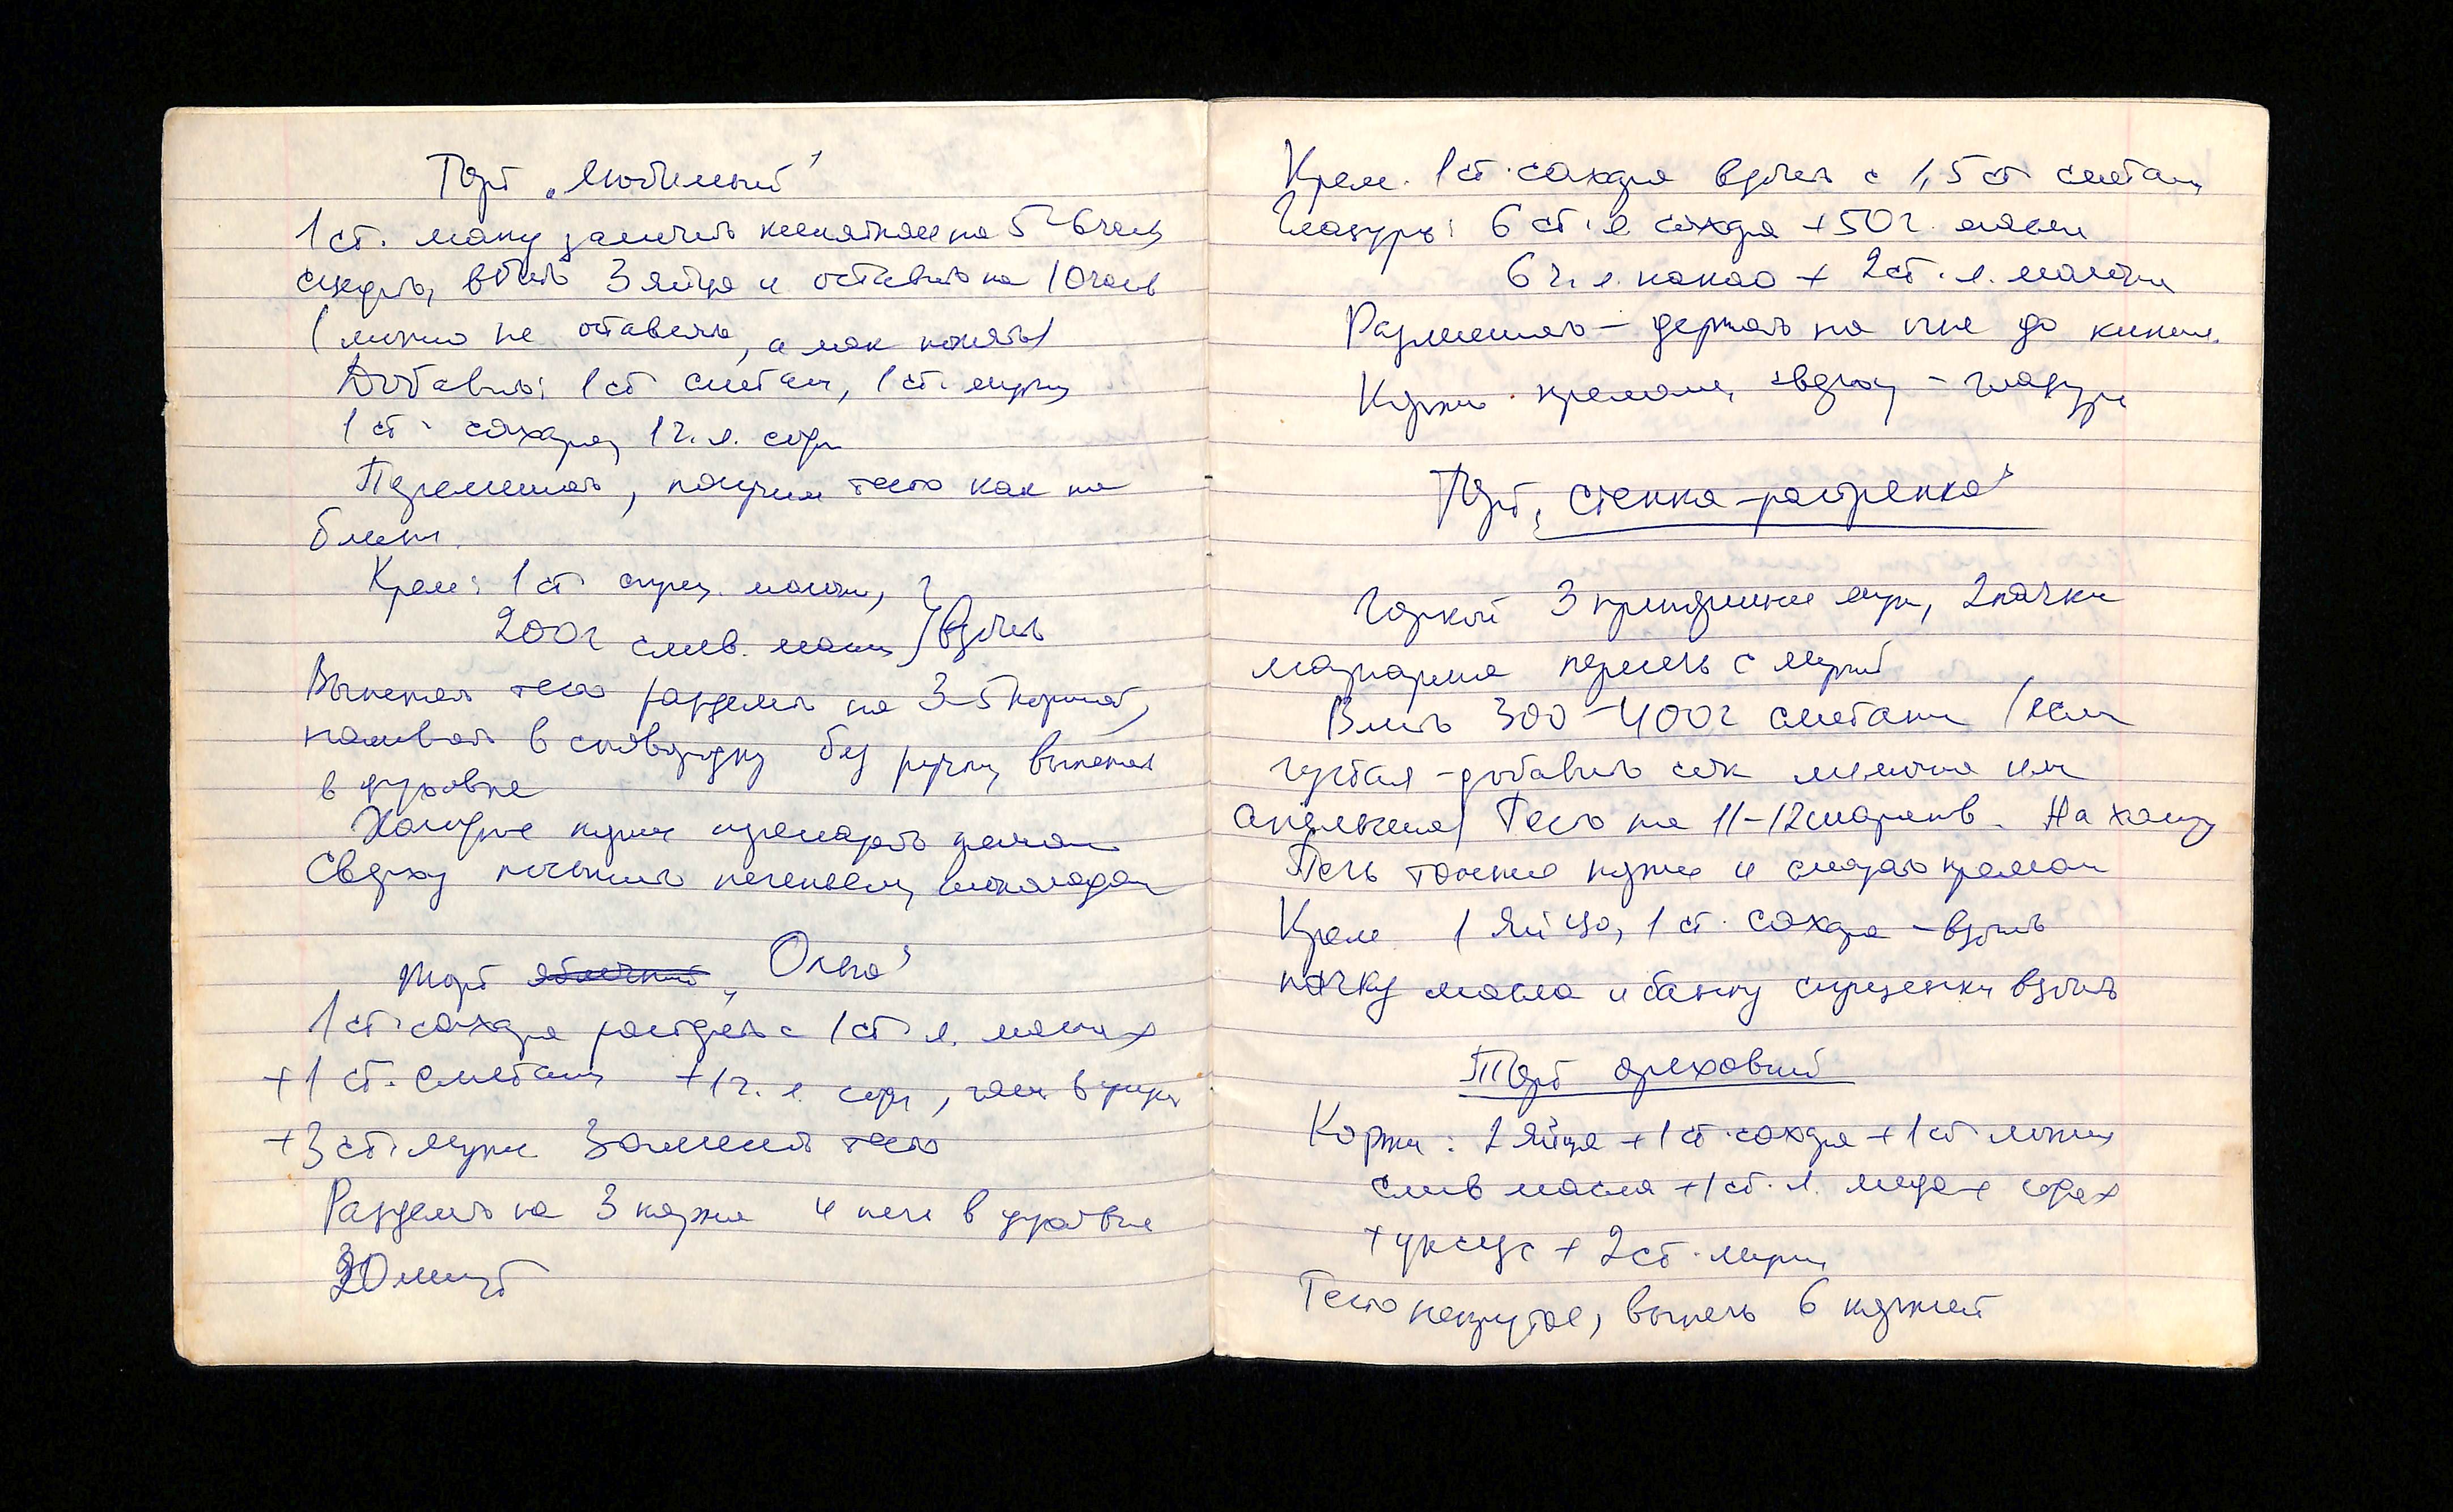 Торт „Любимый"
1 ст. маку замочить кипятком на 5-6 часов
сцедить, вбить 3 яйца и оставить на 10 часов
(можно не оставлять, а мак
Добавить: 1 ст сметаны, 1 ст. муки
1 ст. сахара, 1 ч. л. соды
Перемешать, получим тесто как на
блины.
Крем: 1 ст сгущ. молока, }
200г слив. масла } взбить
Выпекать тесто разделить на 3-5 коржей,
наливать в сковородку без ручки, выпекать
в духовке
Холодные коржи кремом
Сверху посыпать печеньем, шоколадом
торт яблочный „Ольга"
1 ст. сахара растереть с 1 ст. л. масла +
+1 ст. сметаны +1 ч. л. соды,
+3 ст. муки Замесить тесто
Разделить на 3 коржа и печь в духовке
30 минут
Крем. 1 ст. сахара взбить с 1,5 ст сметаны
Глазурь: 6 ст. л. сахара +50 г. масла
6 ч. л. какао + 2 ст. л. молока
Размешать – держать на огне до кипения.
Коржи кремом, сверху – глазурь
Торт „Стенка-растрепка"
Горкой 3 муки, 2 пачки
маргарина с мукой
Влить 300-400г сметаны (если
густая – добавить сок лимона или
апельсина) Тесто на 11-12 шариков. На холод
Печь тонкие коржи и смазать кремом
Крем 1 яйцо, 1 ст. сахара – взбить
пачку масла и банку сгущенки взбить
Торт ореховый
Коржи: 2 яйца + 1 ст. сахара + 1 ст ложка
слив масла + 1 ст. л. меда +
+ уксус + 2 ст. муки
Тесто некрутое, выпечь 6 коржей